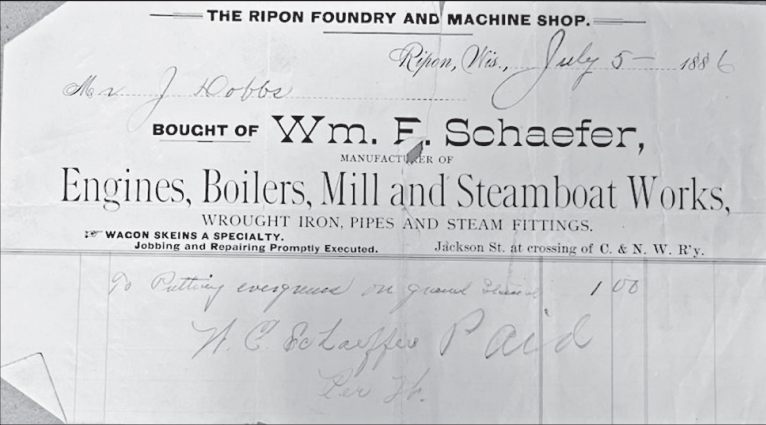 THE RIPON FOUNDRY AND MACHINE SHOP.
Ripon, Wis., July 5 1886
Mr J Dobbs
BOUGHT OF Wm. F. Schaefer,
MANUFACTURER OF
Engines, Boilers, Mill and Steamboat Works,
WROUGHT IRON, PIPES AND STEAM FITTINGS.
WAGON SKEINS A SPECIALTY.
Jobbing and Repairing Promptly Executed. Jackson St. at crossing of C. & N. W. R'y.
To Putting on 1 00
Schaeffer Paid
Per